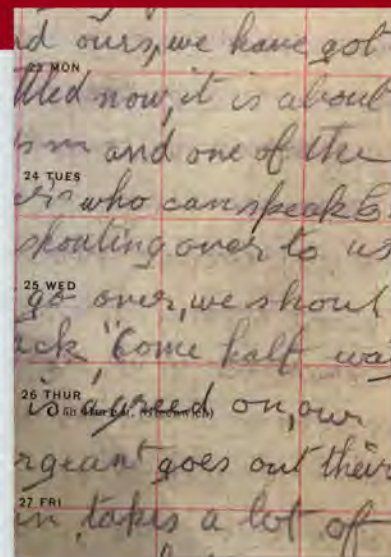 d ours, we have got
23 MON
tled now, it is about
pm and one of the
24 TUES
who can speak E
shouting over to us
25 WED
go over, we shout
ack "Come half wa
26 THUR
is agreed on, our
rgeant goes out their
27 FRI
takes a lot of